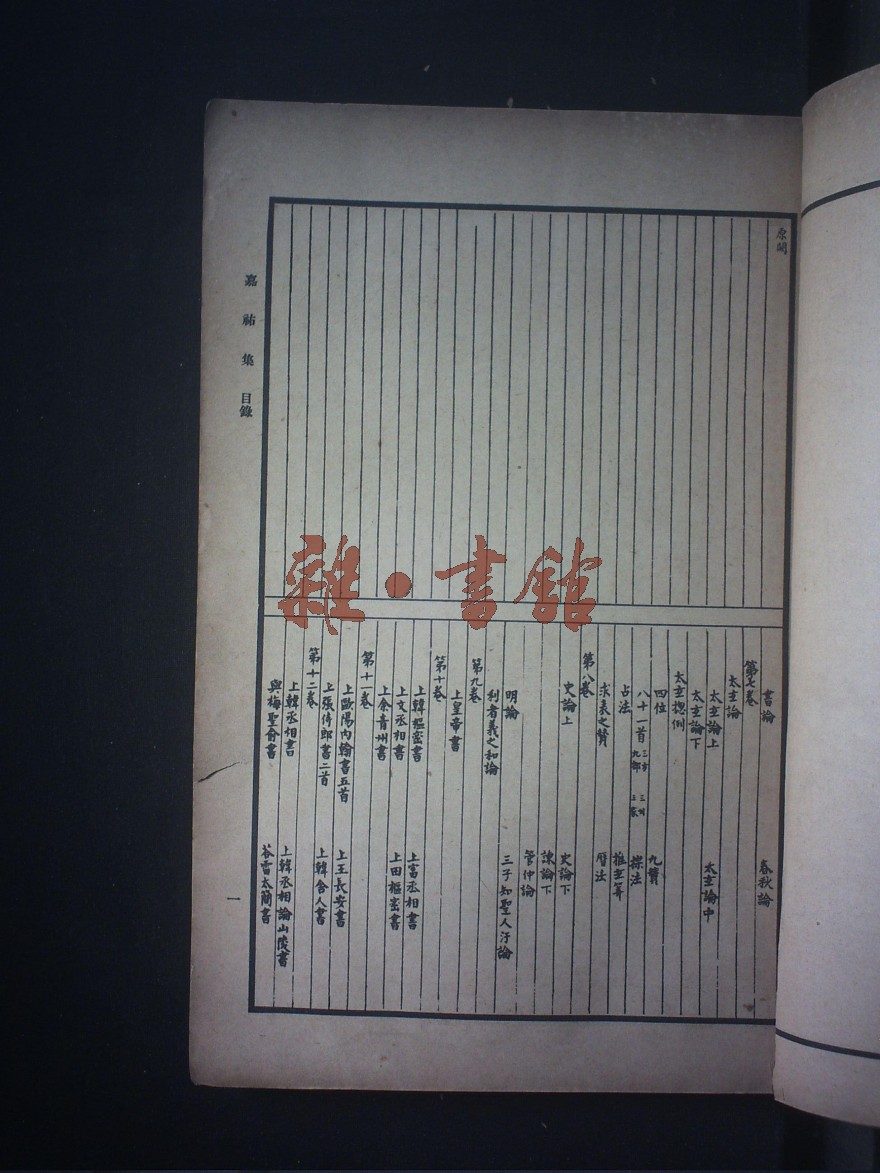 原闕
書論 春秋論
第七卷
太玄論
太玄論上 太玄論中
太玄論下
太玄揔例
四位 九贊
八十一首 三方 三州 九部 三家 揲法
占法 推玄筭
求表之贊 曆法
第八卷
史論上 史論下
諫論下
管仲論
明論 三子知聖人汙論
利者義之和論
第九卷
上皇帝書
第十卷
上韓樞密書 上富丞相書
上文丞相書 上田樞密書
上余青州書
第十一卷
上歐陽內翰書五首 上王長安書
上張侍郎書二首 上韓舍人書
第十二卷
上韓丞相書 上韓丞相論山陵書
與梅聖俞書 荅雷太簡書
嘉祐集 目錄
一
雜·書館